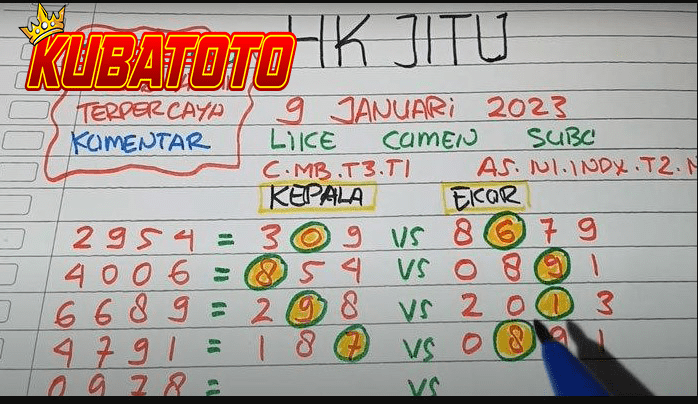 KUBATOTO
HK JITU
TERPERCAYA
KOMENTAR
9 JANUARI 2023
LIKE COMEN SUBC
C.MB.T3.T1 AS.N1.INDX.T2.N
KEPALA EKOR
2954 = 309 VS 8679
4006 = 854 VS 0891
6689 = 298 VS 2013
4791 = 187 VS 0891
0978 = VS